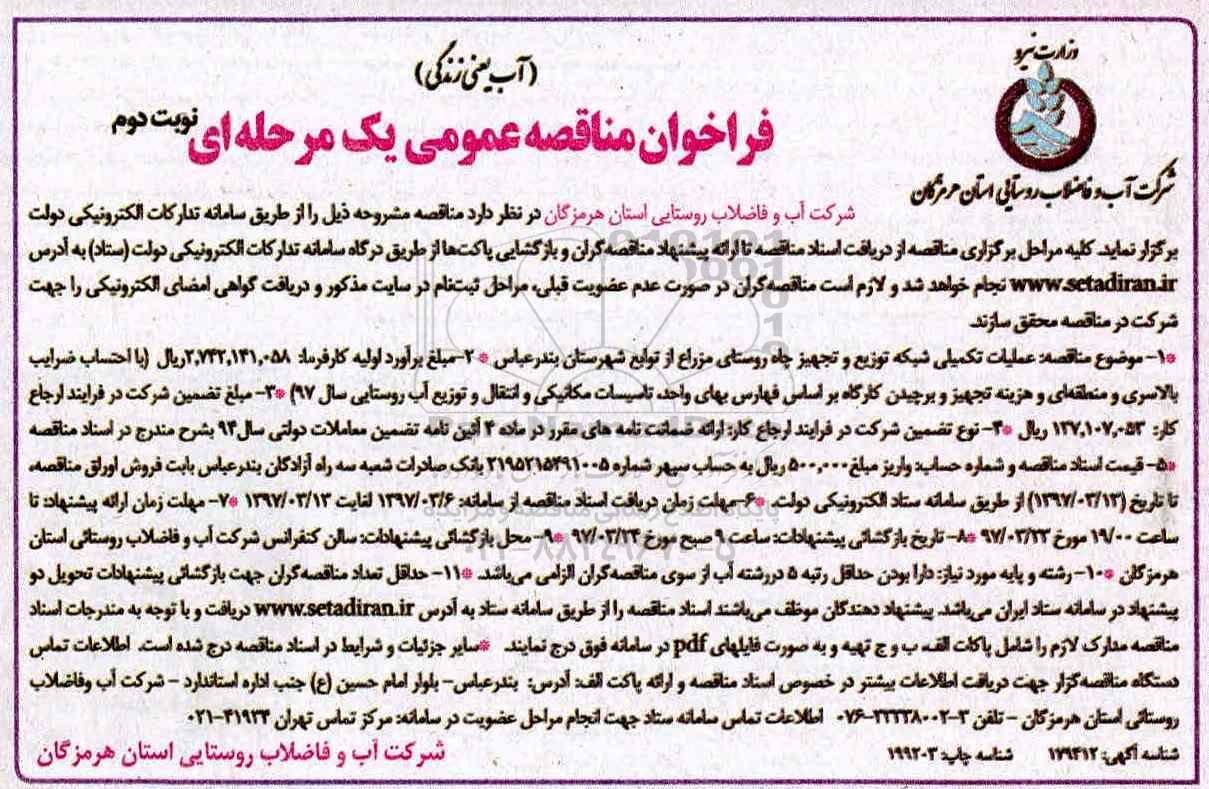 وزارت نیرو
(آب یعنی زندگی)
فراخوان مناقصه عمومی یک مرحله‌ای نوبت دوم
شرکت آب و فاضلاب روستایی استان هرمزگان
شرکت آب و فاضلاب روستایی استان هرمزگان در نظر دارد مناقصه مشروحه ذیل را از طریق سامانه تدارکات الکترونیکی دولت
برگزار نماید. کلیه مراحل برگزاری مناقصه از دریافت اسناد مناقصه تا ارائه پیشنهاد مناقصه‌گران و بازگشایی پاکت‌ها از طریق درگاه سامانه تدارکات الکترونیکی دولت (ستاد) به آدرس
www.setadiran.ir نجام خواهد شد و لازم است مناقصه‌گران در صورت عدم عضویت قبلی، مراحل ثبت‌نام در سایت مذکور و دریافت گواهی امضای الکترونیکی را جهت
شرکت در مناقصه محقق سازند.
*۱- موضوع مناقصه: عملیات تکمیلی شبکه توزیع و تجهیز چاه روستای مزراع از توابع شهرستان بندرعباس *۲-مبلغ برآورد اولیه کارفرما: ۲,۷۴۲,۱۴۱,۰۵۸ریال (با احتساب ضرایب
بالاسری و منطقه‌ای و هزینه تجهیز و برچیدن کارگاه بر اساس فهارس بهای واحد، تاسیسات مکانیکی و انتقال و توزیع آب روستایی سال ۹۷) *۳- مبلغ تضمین شرکت در فرایند ارجاع
کار: ۱۳۷,۱۰۷,۰۵۳ ریال *۴- نوع تضمین شرکت در فرایند ارجاع کار: ارائه ضمانت نامه های مقرر در ماده ۴ آئین نامه تضمین معاملات دولتی سال۹۴ بشرح مندرج در اسناد مناقصه
*۵- قیمت اسناد مناقصه و شماره حساب: واریز مبلغ۵۰۰,۰۰۰ ریال به حساب سپهر شماره ۲۱۹۵۲۱۵۴۹۱۰۰۵ بانک صادرات شعبه سه راه آزادگان بندرعباس بابت فروش اوراق مناقصه،
تا تاریخ (۱۳۹۷/۰۳/۱۳) از طریق سامانه ستاد الکترونیکی دولت. *۶-مهلت زمان دریافت اسناد مناقصه از سامانه: ۱۳۹۷/۰۳/۶ لغایت ۱۳۹۷/۰۳/۱۳ *۷- مهلت زمان ارائه پیشنهاد: تا
ساعت ۱۹/۰۰ مورخ ۹۷/۰۳/۲۳ *۸- تاریخ بازگشائی پیشنهادات: ساعت ۹ صبح مورخ ۹۷/۰۳/۲۴ *۹- محل بازگشائی پیشنهادات: سالن کنفرانس شرکت آب و فاضلاب روستائی استان
هرمزگان *۱۰- رشته و پایه مورد نیاز: دارا بودن حداقل رتبه ۵ دررشته آب از سوی مناقصه‌گران الزامی می‌باشد. *۱۱- حداقل تعداد مناقصه‌گران جهت بازگشائی پیشنهادات تحویل دو
پیشنهاد در سامانه ستاد ایران می‌باشد. پیشنهاد دهندگان موظف می‌باشند اسناد مناقصه را از طریق سامانه ستاد به آدرس www.setadiran.ir دریافت و با توجه به مندرجات اسناد
مناقصه مدارک لازم را شامل پاکات الف، ب و ج تهیه و به صورت فایلهای pdf در سامانه فوق درج نمایند. *سایر جزئیات و شرایط در اسناد مناقصه درج شده است. اطلاعات تماس
دستگاه مناقصه‌گزار جهت دریافت اطلاعات بیشتر در خصوص اسناد مناقصه و ارائه پاکت الف: آدرس: بندرعباس- بلوار امام حسین (ع) جنب اداره استاندارد - شرکت آب وفاضلاب
روستائی استان هرمزگان - تلفن ۳-۳۳۳۳۸۰۰۲-۰۷۶ اطلاعات تماس سامانه ستاد جهت انجام مراحل عضویت در سامانه: مرکز تماس تهران ۴۱۹۳۴-۰۲۱
شناسه آگهی: ۱۷۹۴۱۲ شناسه چاپ: ۱۹۹۲۰۳
شرکت آب و فاضلاب روستایی استان هرمزگان